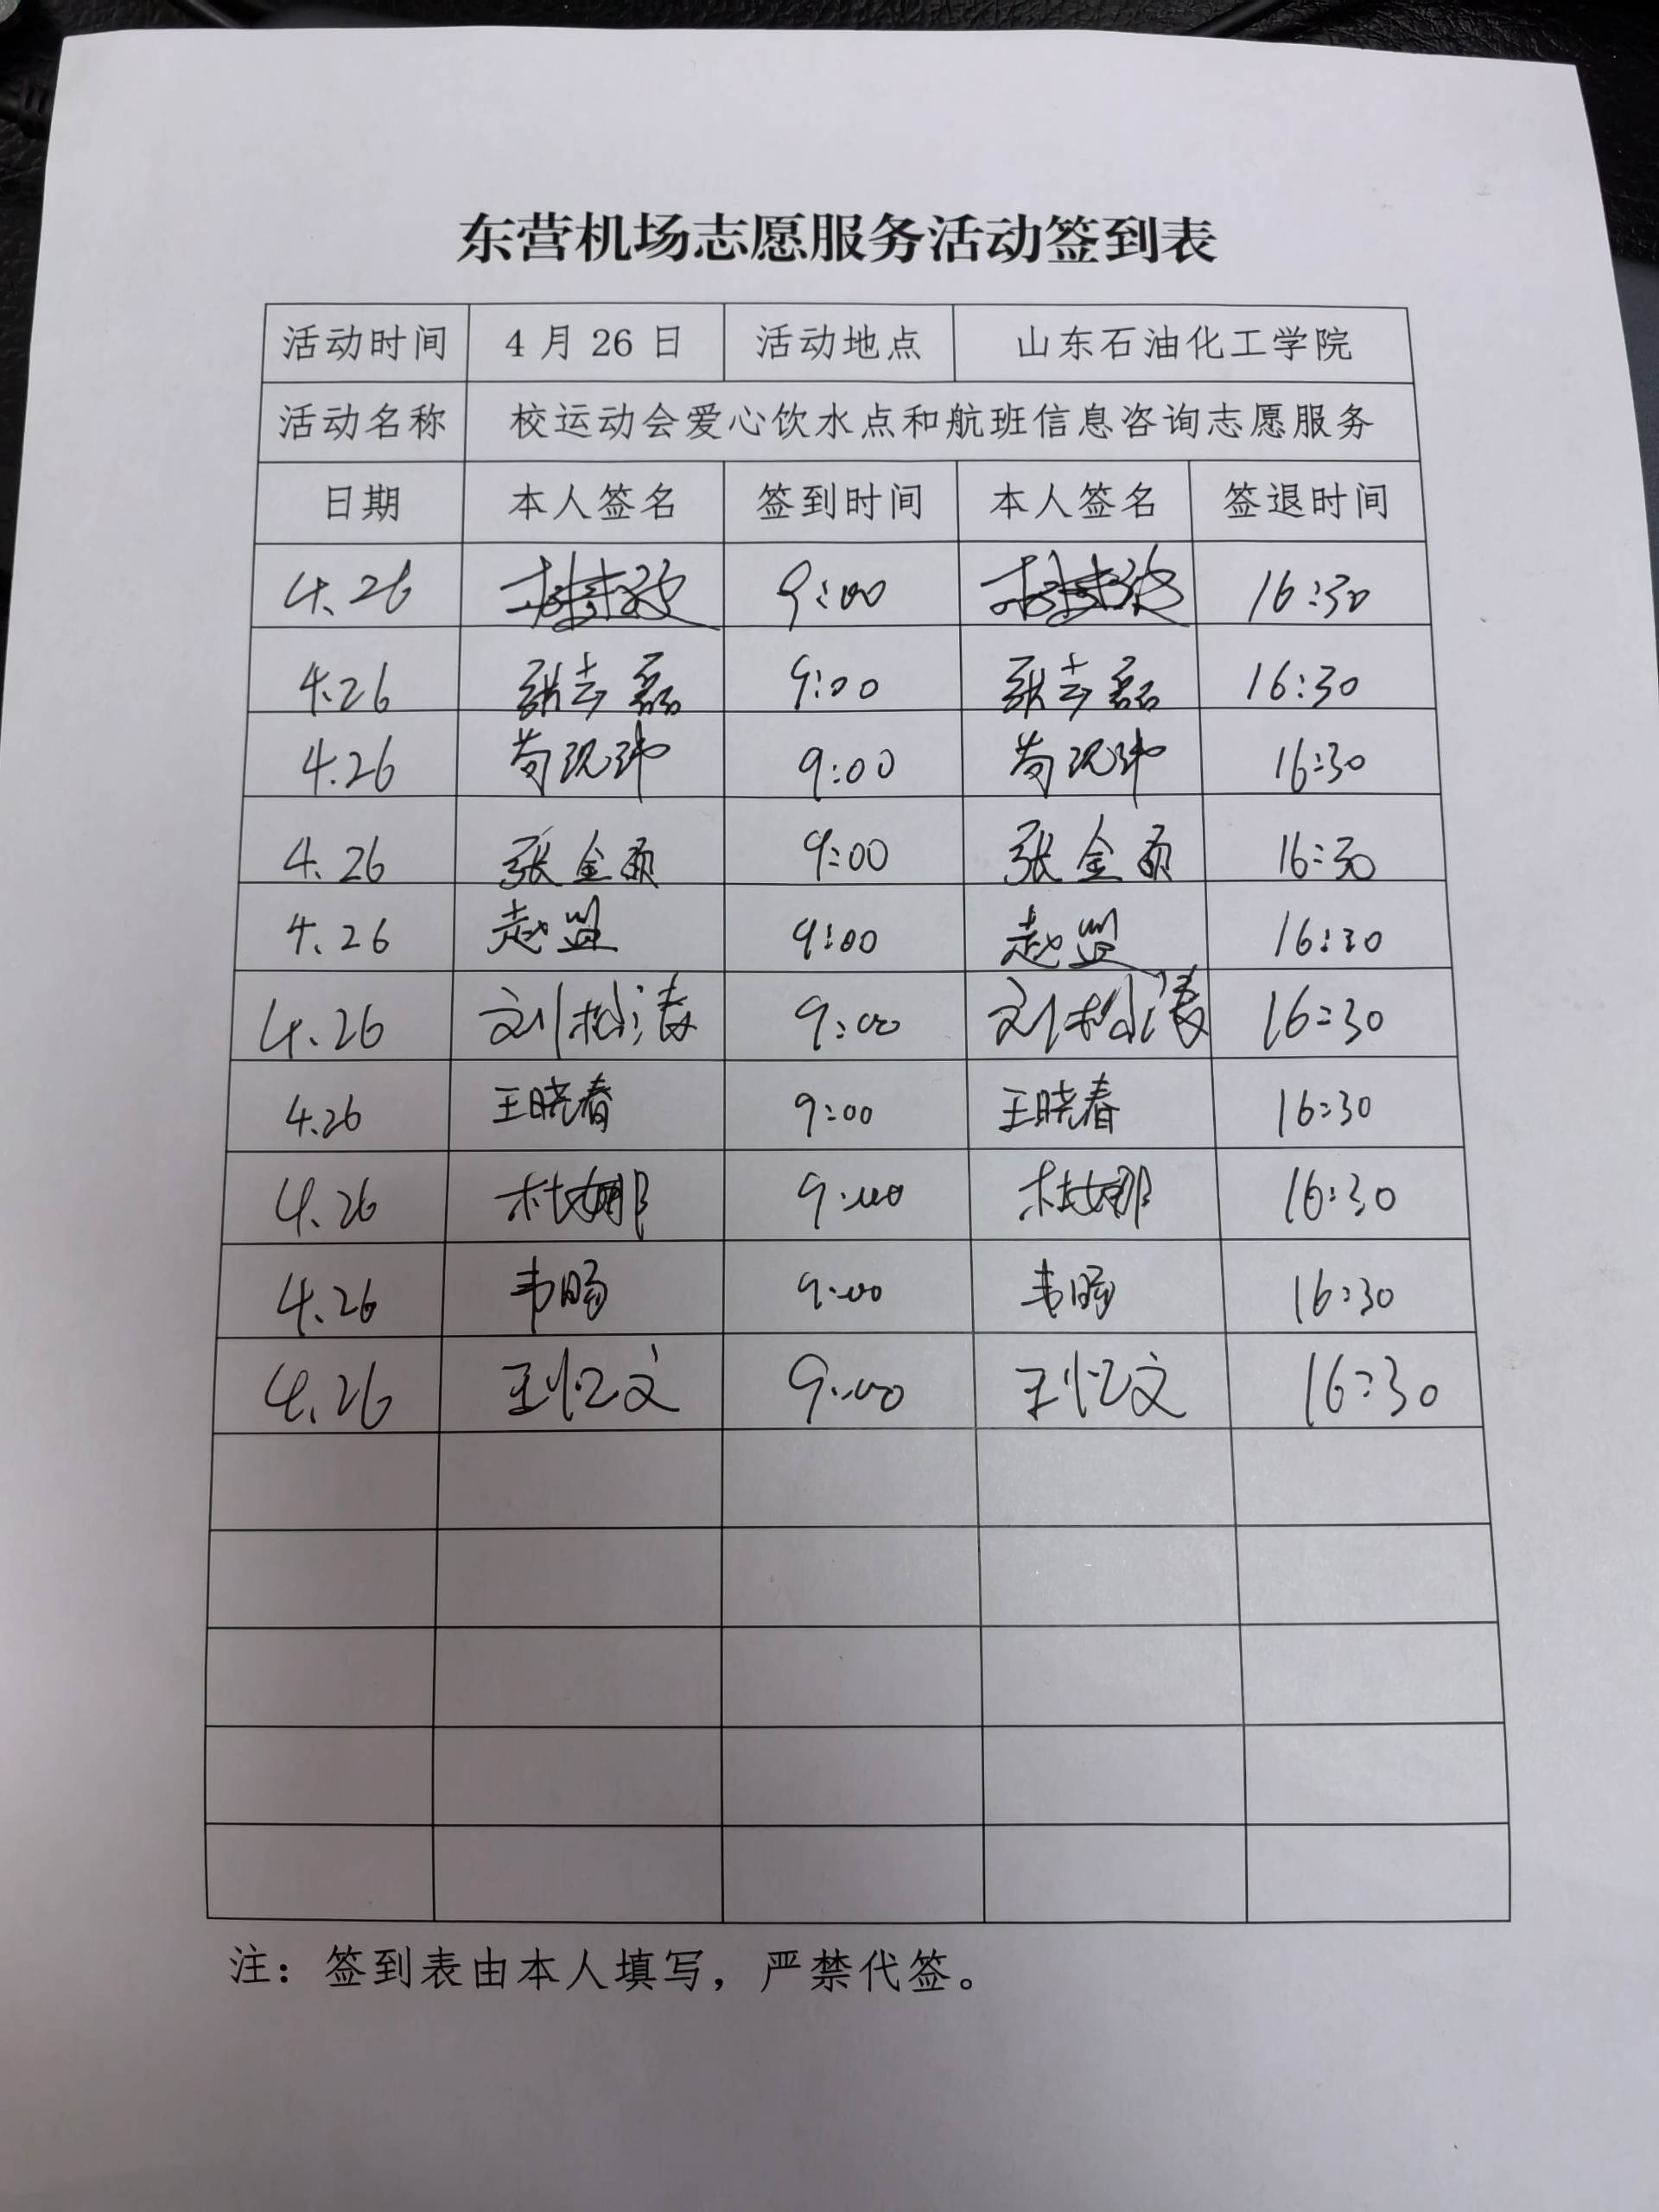 东营机场志愿服务活动签到表
活动时间 4月26日 活动地点 山东石油化工学院
活动名称 校运动会爱心饮水点和航班信息咨询志愿服务
日期 本人签名 签到时间 本人签名 签退时间
4.26 9:00 16:30
4.26 张志磊 9:00 张志磊 16:30
4.26 9:00 16:30
4.26 张金 9:00 张金 16:30
4.26 赵 9:00 赵 16:30
4.26 刘松涛 9:00 刘松涛 16:30
4.26 王晓春 9:00 王晓春 16:30
4.26 杜娜 9:00 杜娜 16:30
4.26 韦 9:00 韦 16:30
4.26 王忆文 9:00 王忆文 16:30
注：签到表由本人填写，严禁代签。